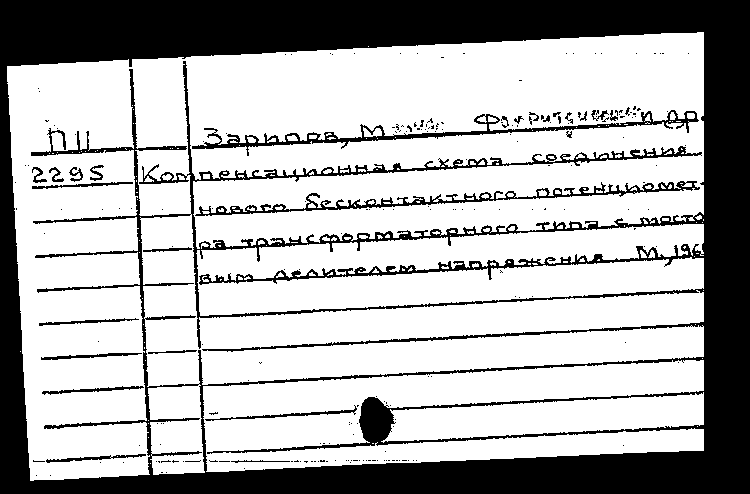 П11 Зарипов, М и др.
2295 Компенсационная схема соединения
нового бесконтактного потенциомет-
ра трансформаторного типа с мосто
вым делителем напряжения М., 196